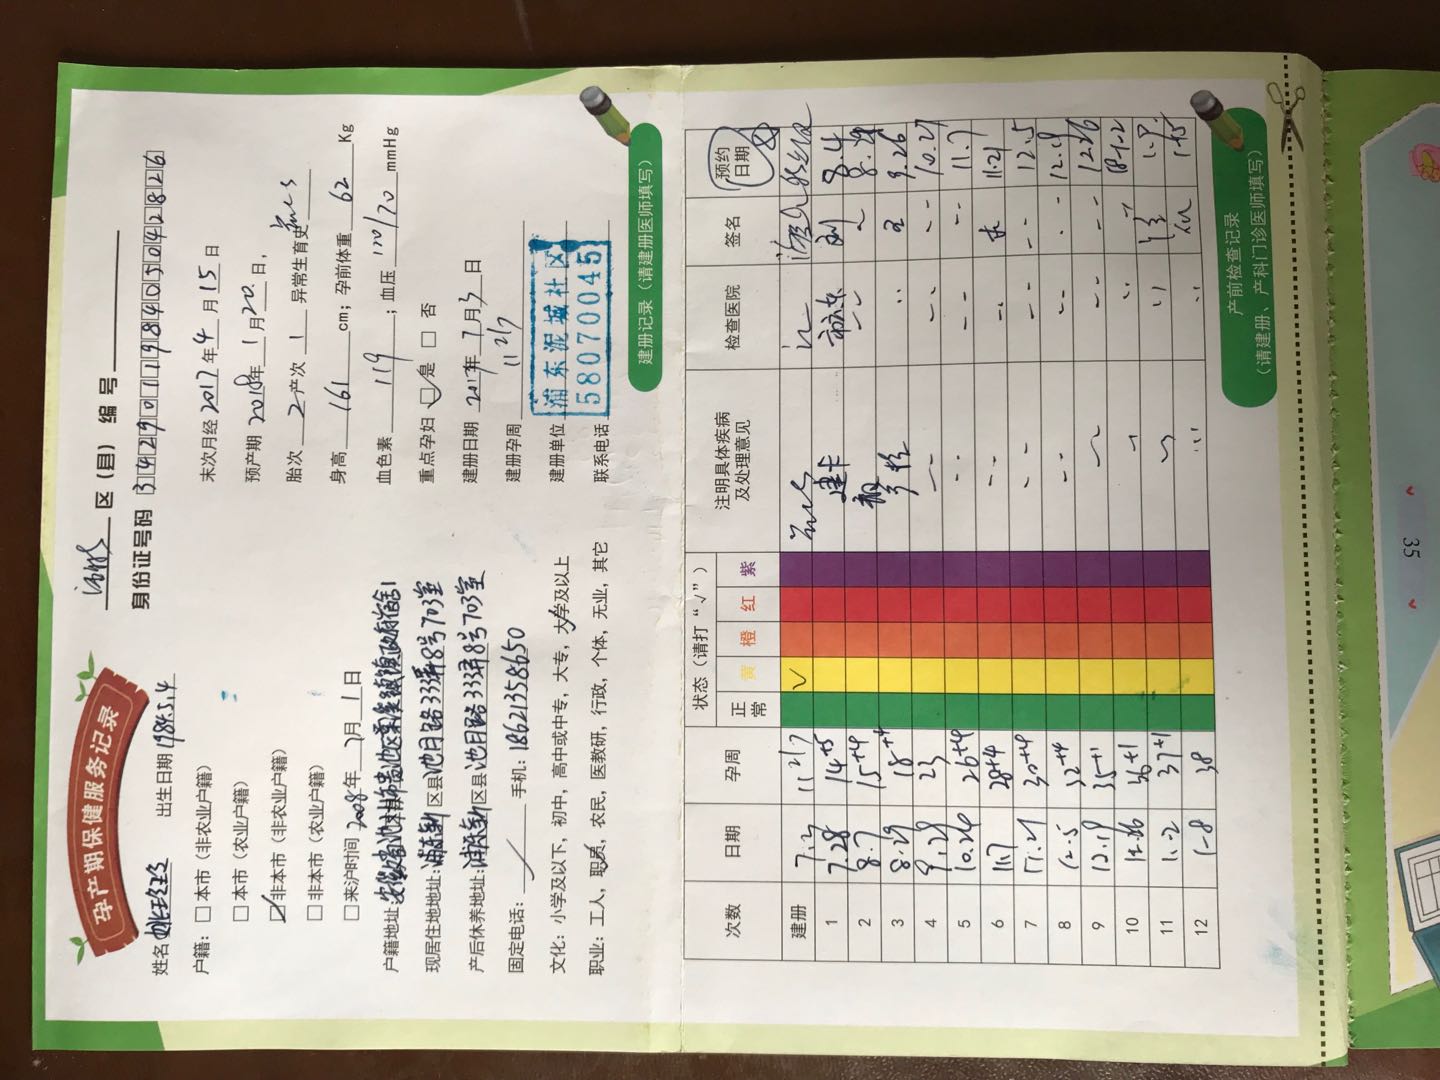 孕产期保健服务记录
区（县）编号
身份证号码 342901198405042826
姓名 出生日期 1984.5.4
户籍：□本市（非农业户籍）
□本市（农业户籍）
☑非本市（非农业户籍）
□非本市（农业户籍）
□来沪时间 2008年 7月 1日
户籍地址：安徽省池州市贵池区 镇政府宿舍1
现居住地地址：浦东新 区县 池月路333弄8号703室
产后休养地址：浦东新 区县 池月路333弄8号703室
固定电话： / 手机：18621358650
文化：小学及以下，初中，高中或中专，大专，大学及以上
职业：工人，职员，农民，医教研，行政，个体，无业，其它
末次月经 2017年 4月 15日
预产期 2018年 1月 20日，
胎次 2 产次 1 异常生育史
身高 161 cm；孕前体重 62 Kg
血色素 119；血压 120/70 mmHg
重点孕妇 ☑是 □否
建册日期 2017年 7月 3日
建册孕周 11 2/7
建册单位 浦东泥城社区
联系电话 58070045
建册记录（请建册医师填写）
次数 日期 孕周 状态（请打“√”） 注明具体疾病及处理意见 检查医院 签名 预约日期
正常 黄 橙 红 紫
建册 7.3 11 2/7 √
1 7.28 14+5 建卡 8.4
2 8.7 15+4 8.29
3 8.29 18+4 产检 王 9.26
4 9.29 23 10.27
5 10.24 26+4 11.7
6 11.7 28+4 11.21
7 11.21 30+4 12.5
8 12.5 32+4 12.19
9 12.19 35+1 12.26
10 12.26 36+1 18-1-2
11 1.-2 37+1 1.9.
12 1-8 38 1-15
产前检查记录
（请建册、产科门诊医师填写）
35